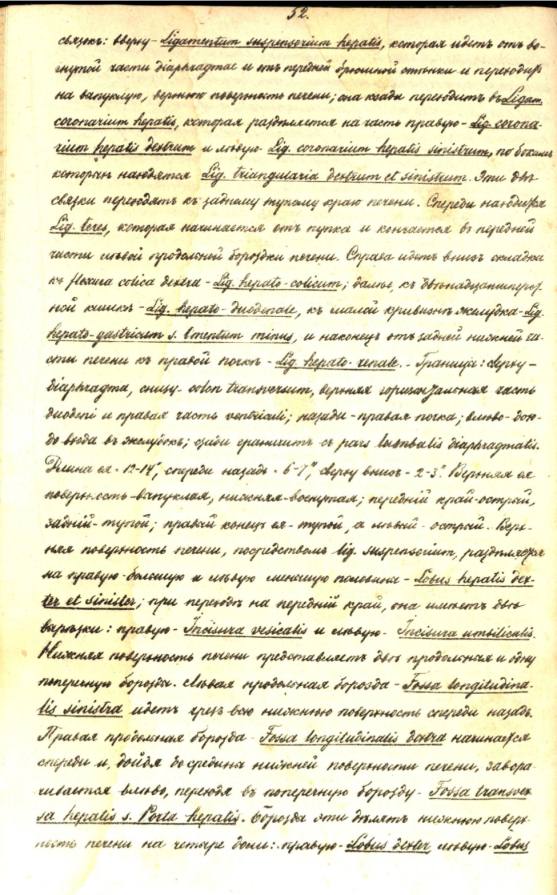 52.
связокъ: вверху - Ligamentum suspensorium hepatis, которая идетъ отъ во-
гнутой части diaphragmae и отъ передней брюшной стѣнки и переходитъ
на выпуклую, верхнюю поверхность печени; она сзади переходитъ въ Ligam.
coronarium hepatis, которая раздѣляется на часть правую - Lig. corona-
rium hepatis dextrum и лѣвую - Lig. coronarium hepatis sinistrum, по бокамъ
которыхъ находятся Lig. triangularia dextrum et sinistrum. Эти двѣ
связки переходятъ къ заднему тупому краю печени. Спереди находится
Lig. teres, которая начинается отъ пупка и кончается въ передней
части лѣвой продольной бороздки печени. Справа идетъ внизъ складка
къ flexura colica dextra - Lig. hepato-colicum; далѣе, къ двѣнадцатиперст-
ной кишкѣ - Lig. hepato-duodenale, къ малой кривизнѣ желудка - Lig.
hepato-gastricum s. Omentum minus, и наконецъ отъ задней нижней ча-
сти печени къ правой почкѣ - Lig. hepato-renale. - Граница: сверху -
diaphragma, снизу - colon transversum, верхняя горизонтальная часть
duodeni и правая часть ventriculi; назади - правая почка; влѣво - дохо-
до входа въ желудокъ; сзади граничитъ съ pars lumbalis diaphragmatis.
Длина ея - 12-14", спереди назадъ - 6-7", сверху внизъ - 2-3". Верхняя ея
поверхность - выпуклая, нижняя - вогнутая; передній край - острый,
задній - тупой; правый конецъ ея - тупой, а лѣвый - острый. Верх-
няя поверхность печени, посредствомъ lig. suspensorium, раздѣляется
на правую большую и лѣвую меньшую половины - Lobus hepatis dex-
ter et sinister; при переходѣ на передній край, она имѣетъ двѣ
вырѣзки: правую - Incisura vesicalis и лѣвую - Incisura umbilicalis.
Нижняя поверхность печени представляетъ двѣ продольныя и одну
поперечную борозды. Лѣвая продольная борозда - Fossa longitudina-
lis sinistra идетъ чрезъ всю нижнюю поверхность спереди назадъ.
Правая продольная борозда - Fossa longitudinalis dextra начинается
спереди и, дойдя до средины нижней поверхности печени, завора-
чивается влѣво, переходя въ поперечную борозду - Fossa transver-
sa hepatis s. Porta hepatis. Борозды эти дѣлятъ нижнюю поверх-
ность печени на четыре доли: правую - Lobus dexter, лѣвую - Lobus